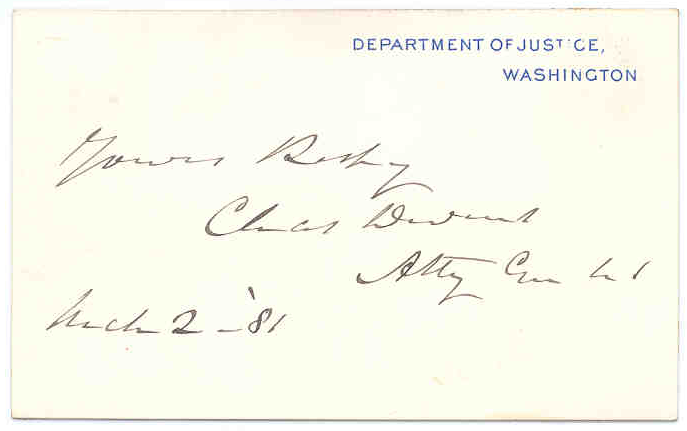 DEPARTMENT OF JUSTICE,
WASHINGTON
Yours Respy
Chas Devens
Atty Gen U S
Mch 2 - '81